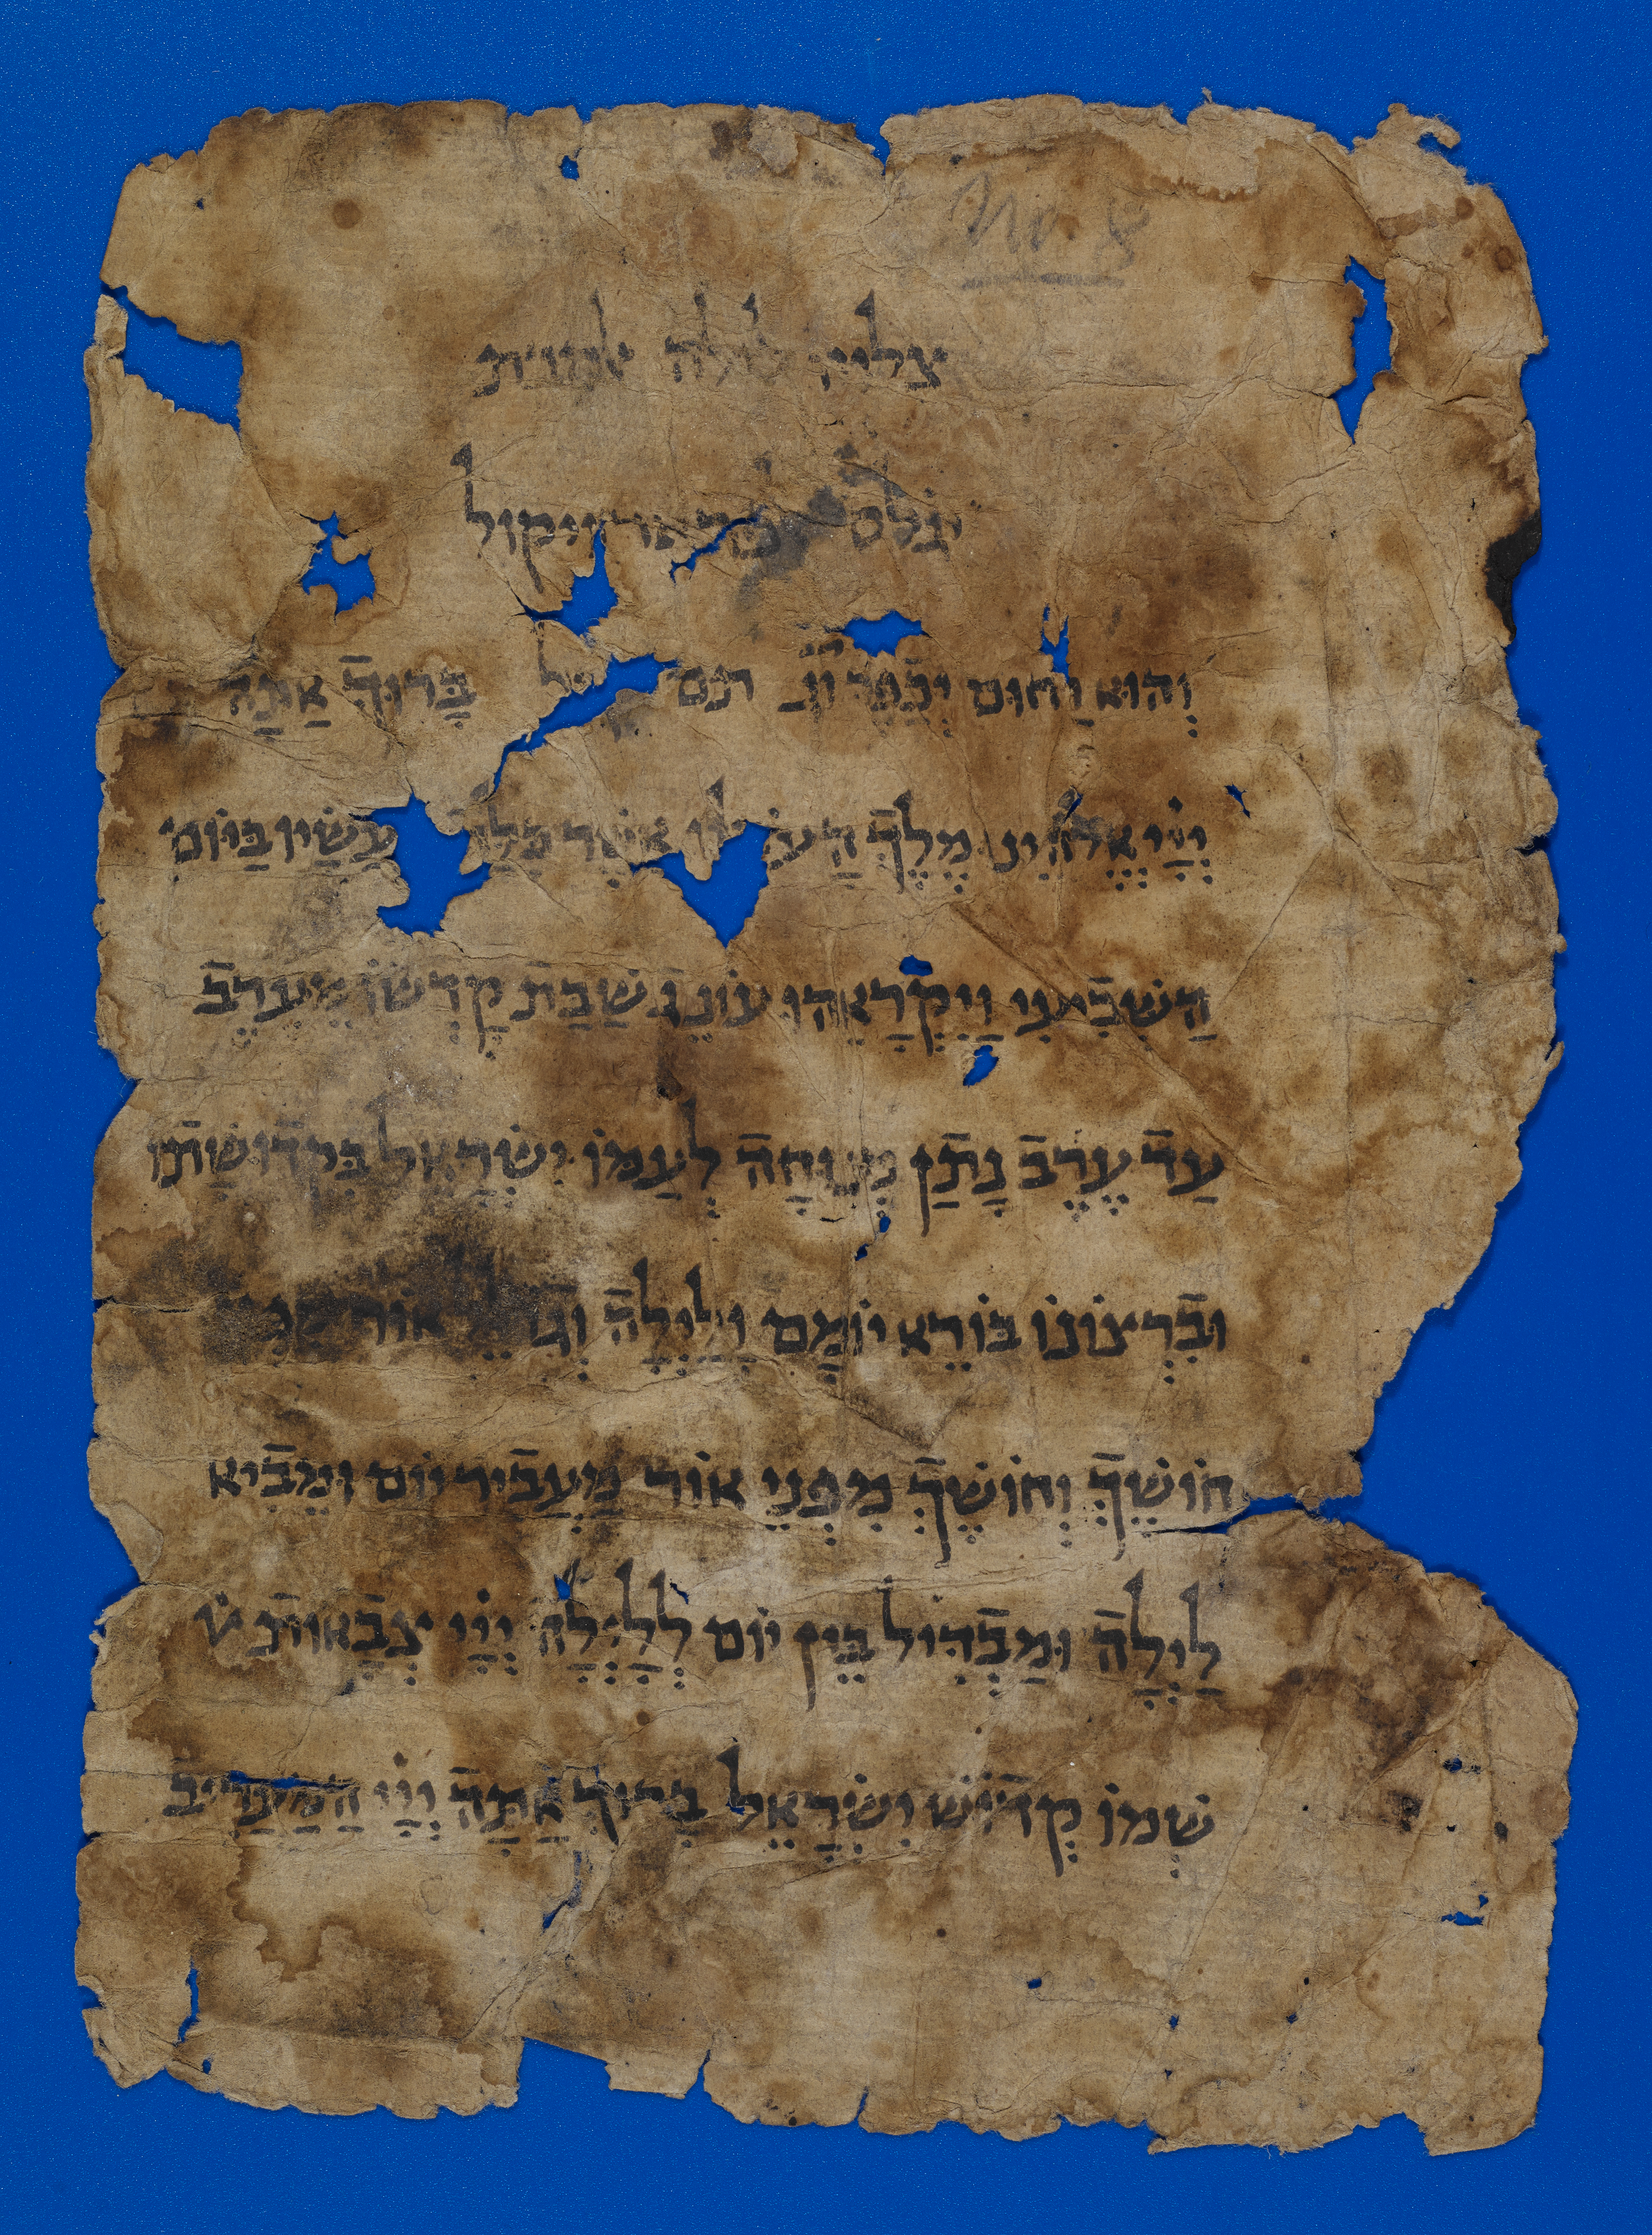 No. 8
צלוי לילה
יגלס ויקול
וְהוּא רַחוּם יְכַפֵּר עון בָּרוּךְ אַתָּה
יְיָָי אֱלֹהֵינו מֶלֶךְ הָעולם אֲשֶׁר כִּלָּה מַעֲשָׂיו בַּיּוֹם
הַשְּׁבִיעִי וַיִּקְרָאֵהוּ עוֹנֶג שַׁבַּת קָדְשׁוֹ מֵעֶרֶב
עַד עֶרֶב נָתַן מְנוּחָה לְעַמּוֹ יִשְׂרָאֵל בִּקְדוּשָׁתוֹ
וּבִרְצוֹנוֹ בּוֹרֵא יוֹמָם וָלַיְלָה וְגוֹלֵל אוֹר מִפְּנֵי
חוֹשֶׁךְ וְחוֹשֶׁךְ מִפְּנֵי אוֹר מַעֲבִיר יוֹם וּמֵבִיא
לַיְלָה וּמַבְדִּיל בֵּין יוֹם לְלָיְלָה יְיָָי צְבָאוֹת שׁ
שְׁמוֹ קְדוֹשׁ יִשְׂרָאֵל בָּרוּךְ אַתָּה יְיָָי הַמַּעֲרִיב